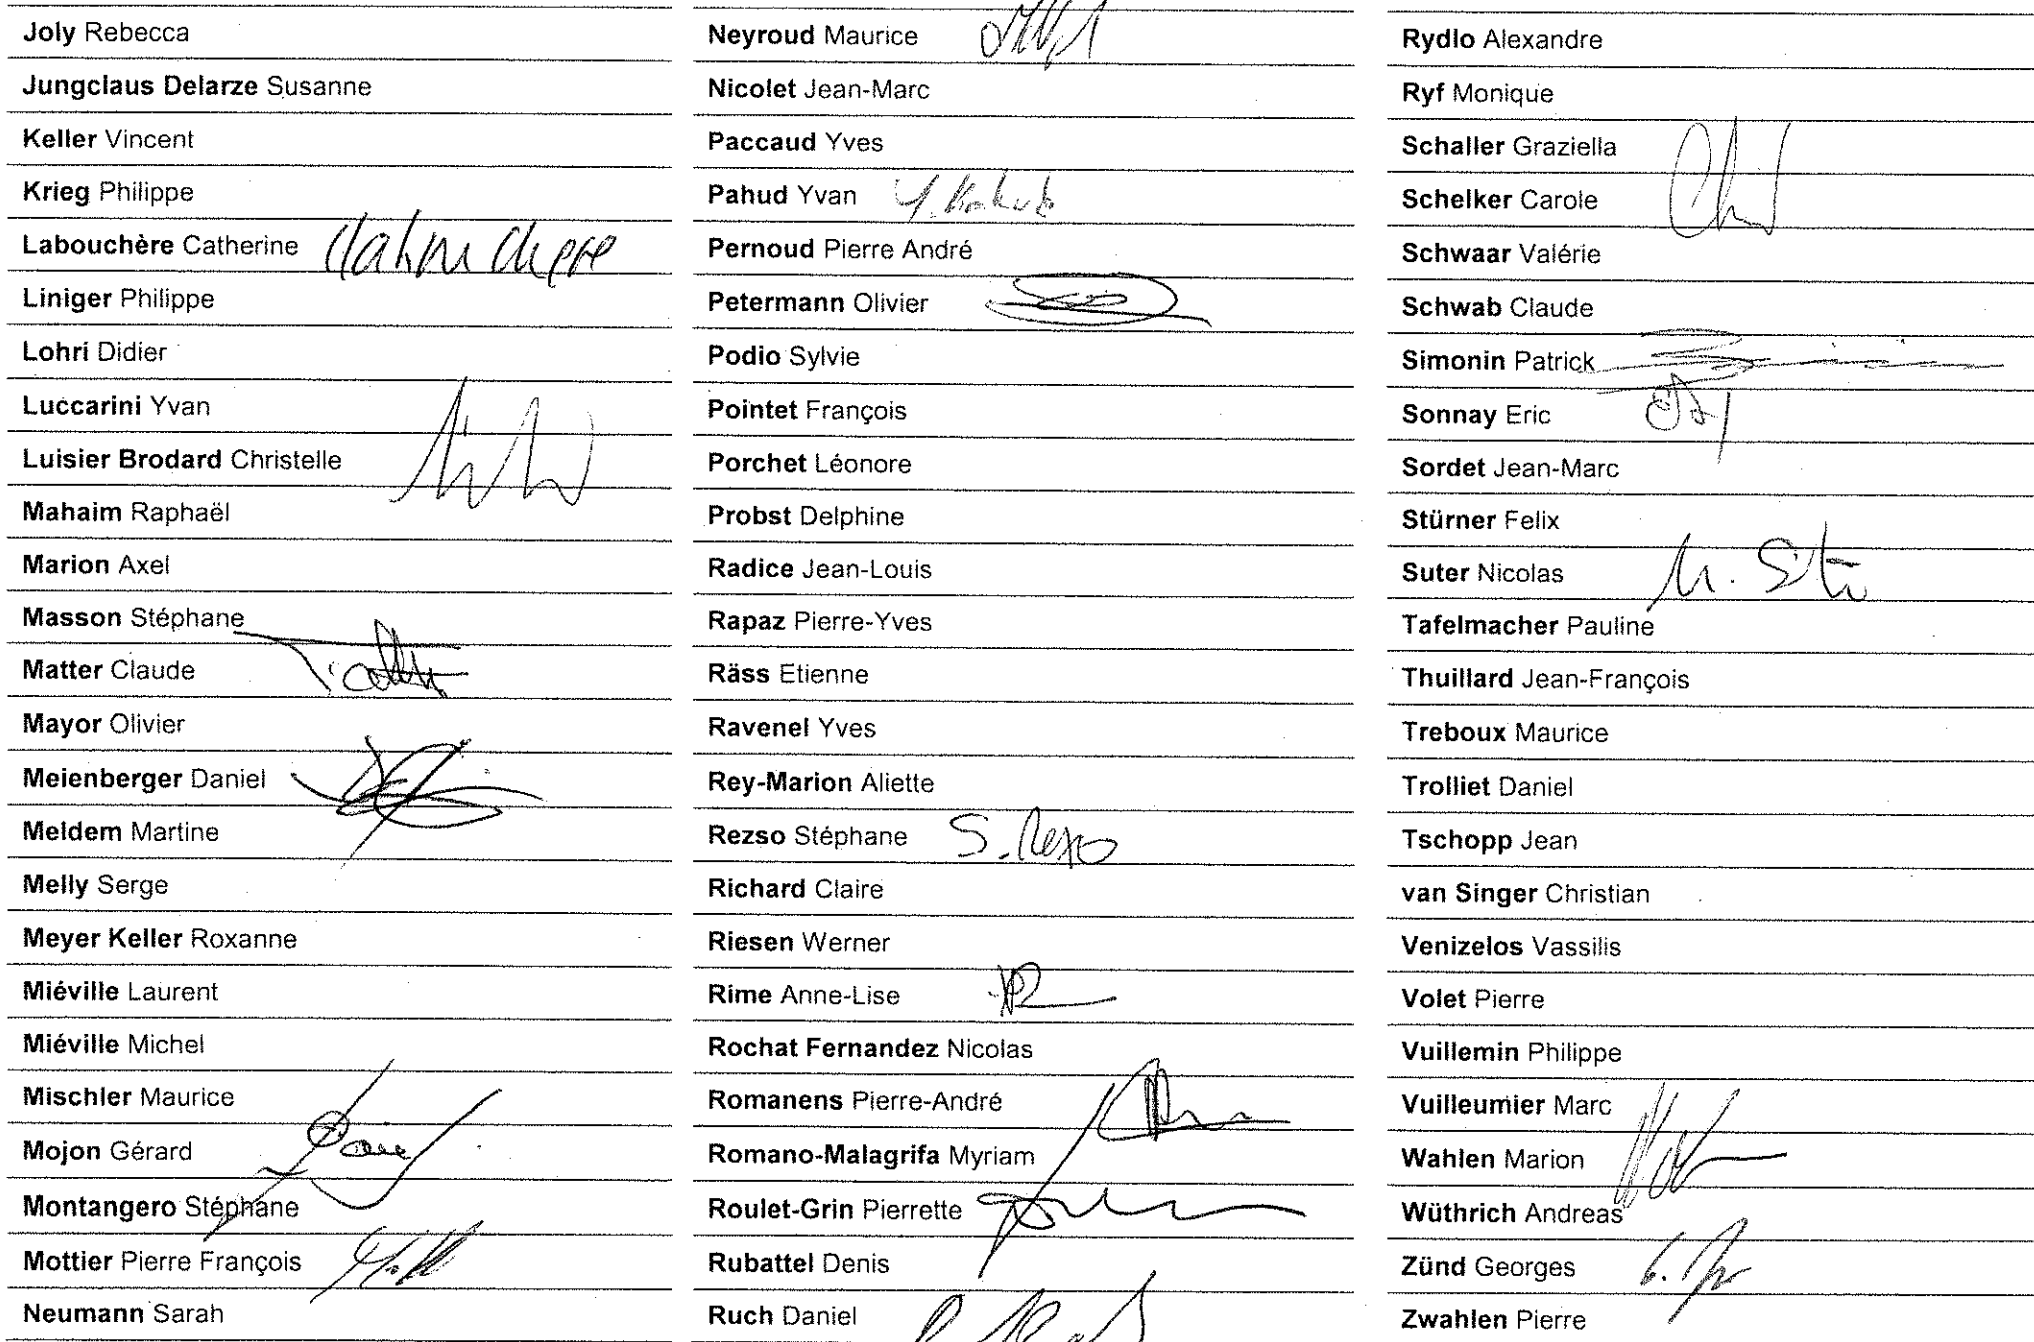 Joly Rebecca
Jungclaus Delarze Susanne
Keller Vincent
Krieg Philippe
Labouchère Catherine
Liniger Philippe
Lohri Didier
Luccarini Yvan
Luisier Brodard Christelle
Mahaim Raphaël
Marion Axel
Masson Stéphane
Matter Claude
Mayor Olivier
Meienberger Daniel
Meldem Martine
Melly Serge
Meyer Keller Roxanne
Miéville Laurent
Miéville Michel
Mischler Maurice
Mojon Gérard
Montangero Stéphane
Mottier Pierre François
Neumann Sarah
Neyroud Maurice
Nicolet Jean-Marc
Paccaud Yves
Pahud Yvan Y. Pahud
Pernoud Pierre André
Petermann Olivier
Podio Sylvie
Pointet François
Porchet Léonore
Probst Delphine
Radice Jean-Louis
Rapaz Pierre-Yves
Räss Etienne
Ravenel Yves
Rey-Marion Aliette
Rezso Stéphane S. Rezso
Richard Claire
Riesen Werner
Rime Anne-Lise
Rochat Fernandez Nicolas
Romanens Pierre-André
Romano-Malagrifa Myriam
Roulet-Grin Pierrette
Rubattel Denis
Ruch Daniel
Rydlo Alexandre
Ryf Monique
Schaller Graziella
Schelker Carole
Schwaar Valérie
Schwab Claude
Simonin Patrick
Sonnay Eric
Sordet Jean-Marc
Stürner Felix
Suter Nicolas
Tafelmacher Pauline
Thuillard Jean-François
Treboux Maurice
Trolliet Daniel
Tschopp Jean
van Singer Christian
Venizelos Vassilis
Volet Pierre
Vuillemin Philippe
Vuilleumier Marc
Wahlen Marion
Wüthrich Andreas
Zünd Georges
Zwahlen Pierre